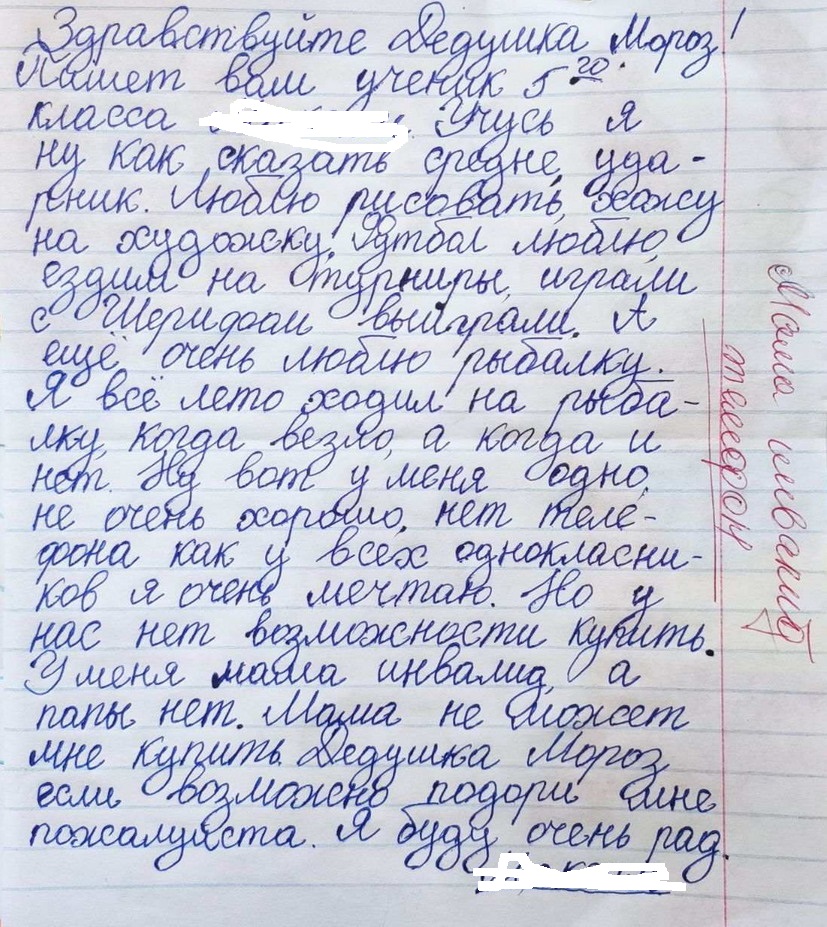 Здравствуйте Дедушка Мороз!
Пишет вам ученик 5 го.
класса Учусь я
ну как сказать средне, уда-
рник. Люблю рисовать, хожу
на художку. Футбол люблю,
ездили на турниры, играли
с выиграли. А
ещё очень люблю рыбалку.
Я всё лето ходил на рыба-
лку, когда везло, а когда и
нет. Ну вот у меня одно,
не очень хорошо, нет теле-
фона как у всех однокласни-
ков я очень мечтаю. Но у
нас нет возможности купить.
У меня мама инвалид, а
папы нет. Мама не может
мне купить. Дедушка Мороз
если возможно подари мне
пожалуйста. Я буду очень рад.
Мама инвалид
телефон